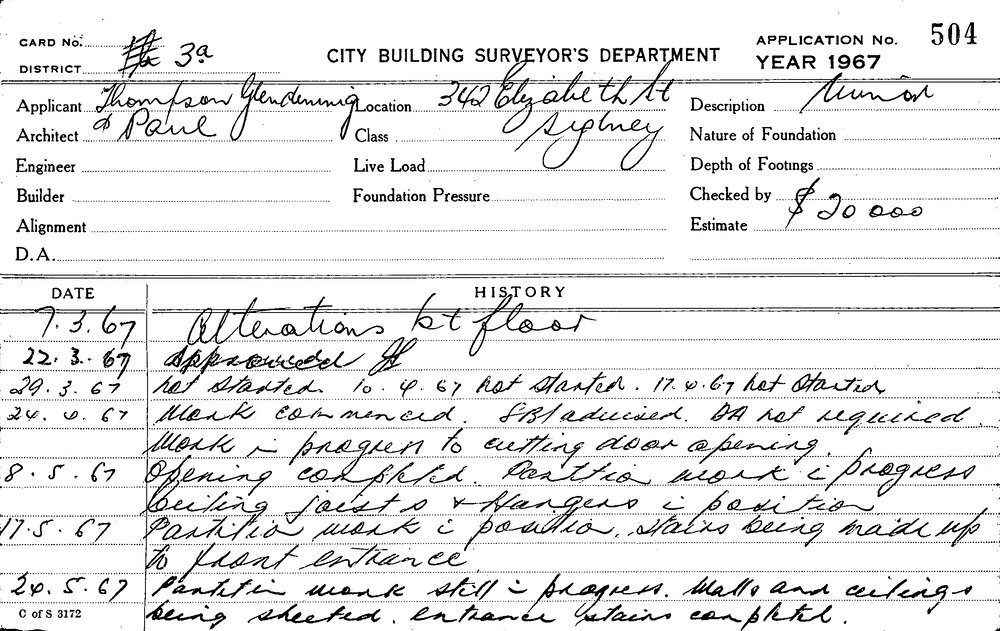 CARD No. 3a
DISTRICT
CITY BUILDING SURVEYOR'S DEPARTMENT
APPLICATION No. 504
YEAR 1967
Applicant Thompson Glendenning Location 342 Elizabeth St Description Minor
Architect & Paul Class Sydney Nature of Foundation
Engineer Live Load Depth of Footings
Builder Foundation Pressure Checked by
Alignment Estimate $20 000
D.A.
DATE HISTORY
7.3.67 Alterations 1st floor
22.3.67 Approved
29.3.67 not started. 10.4.67 not started. 17.4.67 not started
24.4.67 Work commenced. SBI advised. DA not required.
Work in progress to cutting door opening.
8.5.67 Opening completed. Partition work in progress
Ceiling joists & Hangers in position
17.5.67 Partition work in position. Stairs being made up
to front entrance
24.5.67 Partition work still in progress. Walls and ceilings
C of S 3172 being sheeted. entrance stairs completed.